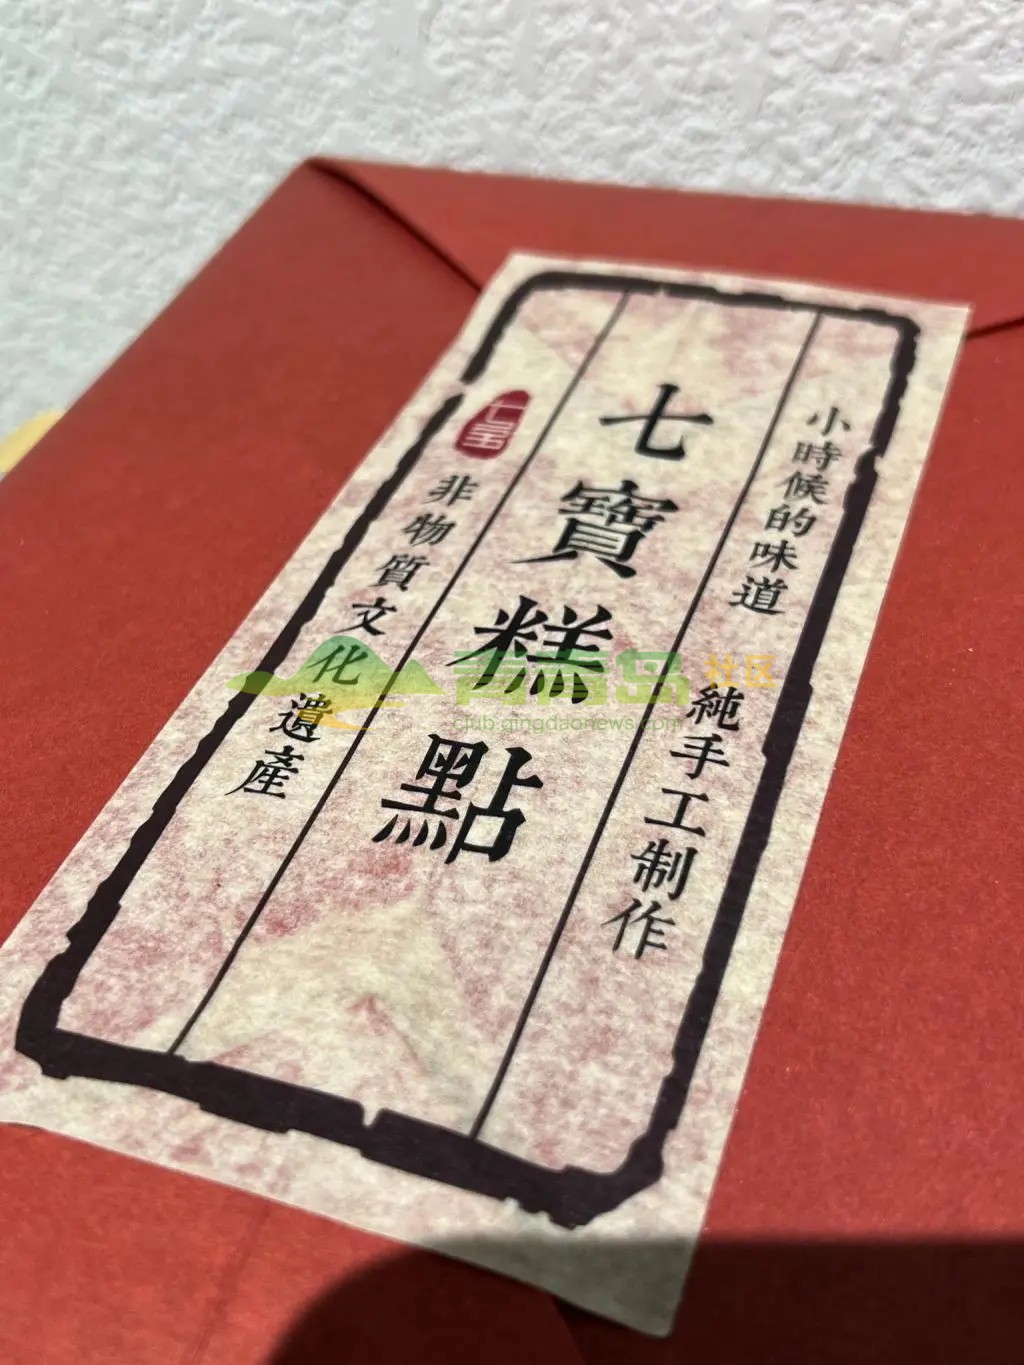 小時候的味道
純手工制作
七寳糕點
七宝
非物質文化遺産
青青岛 社区
club.qingdaonews.com